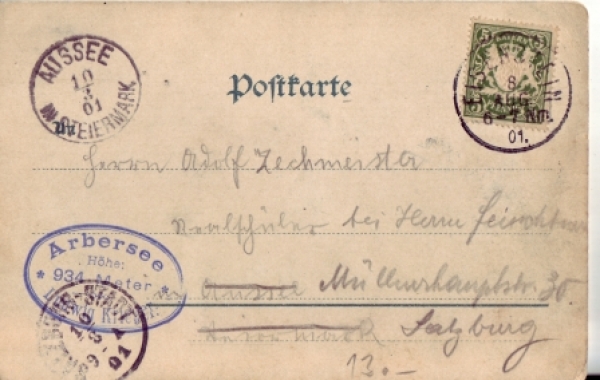 AUSSEE
10
8
01
IN STEIERMARK
Postkarte
5
BAYERN
8
AUG
6-7 Nm.
01.
An
Herrn Adolf Zechmeister
Realschüler bei Herrn
Arbersee
Höhe:
934 Meter
Aussee Müllnerhauptstr. 30.
Salzburg
STADT
10
8
01
13.-